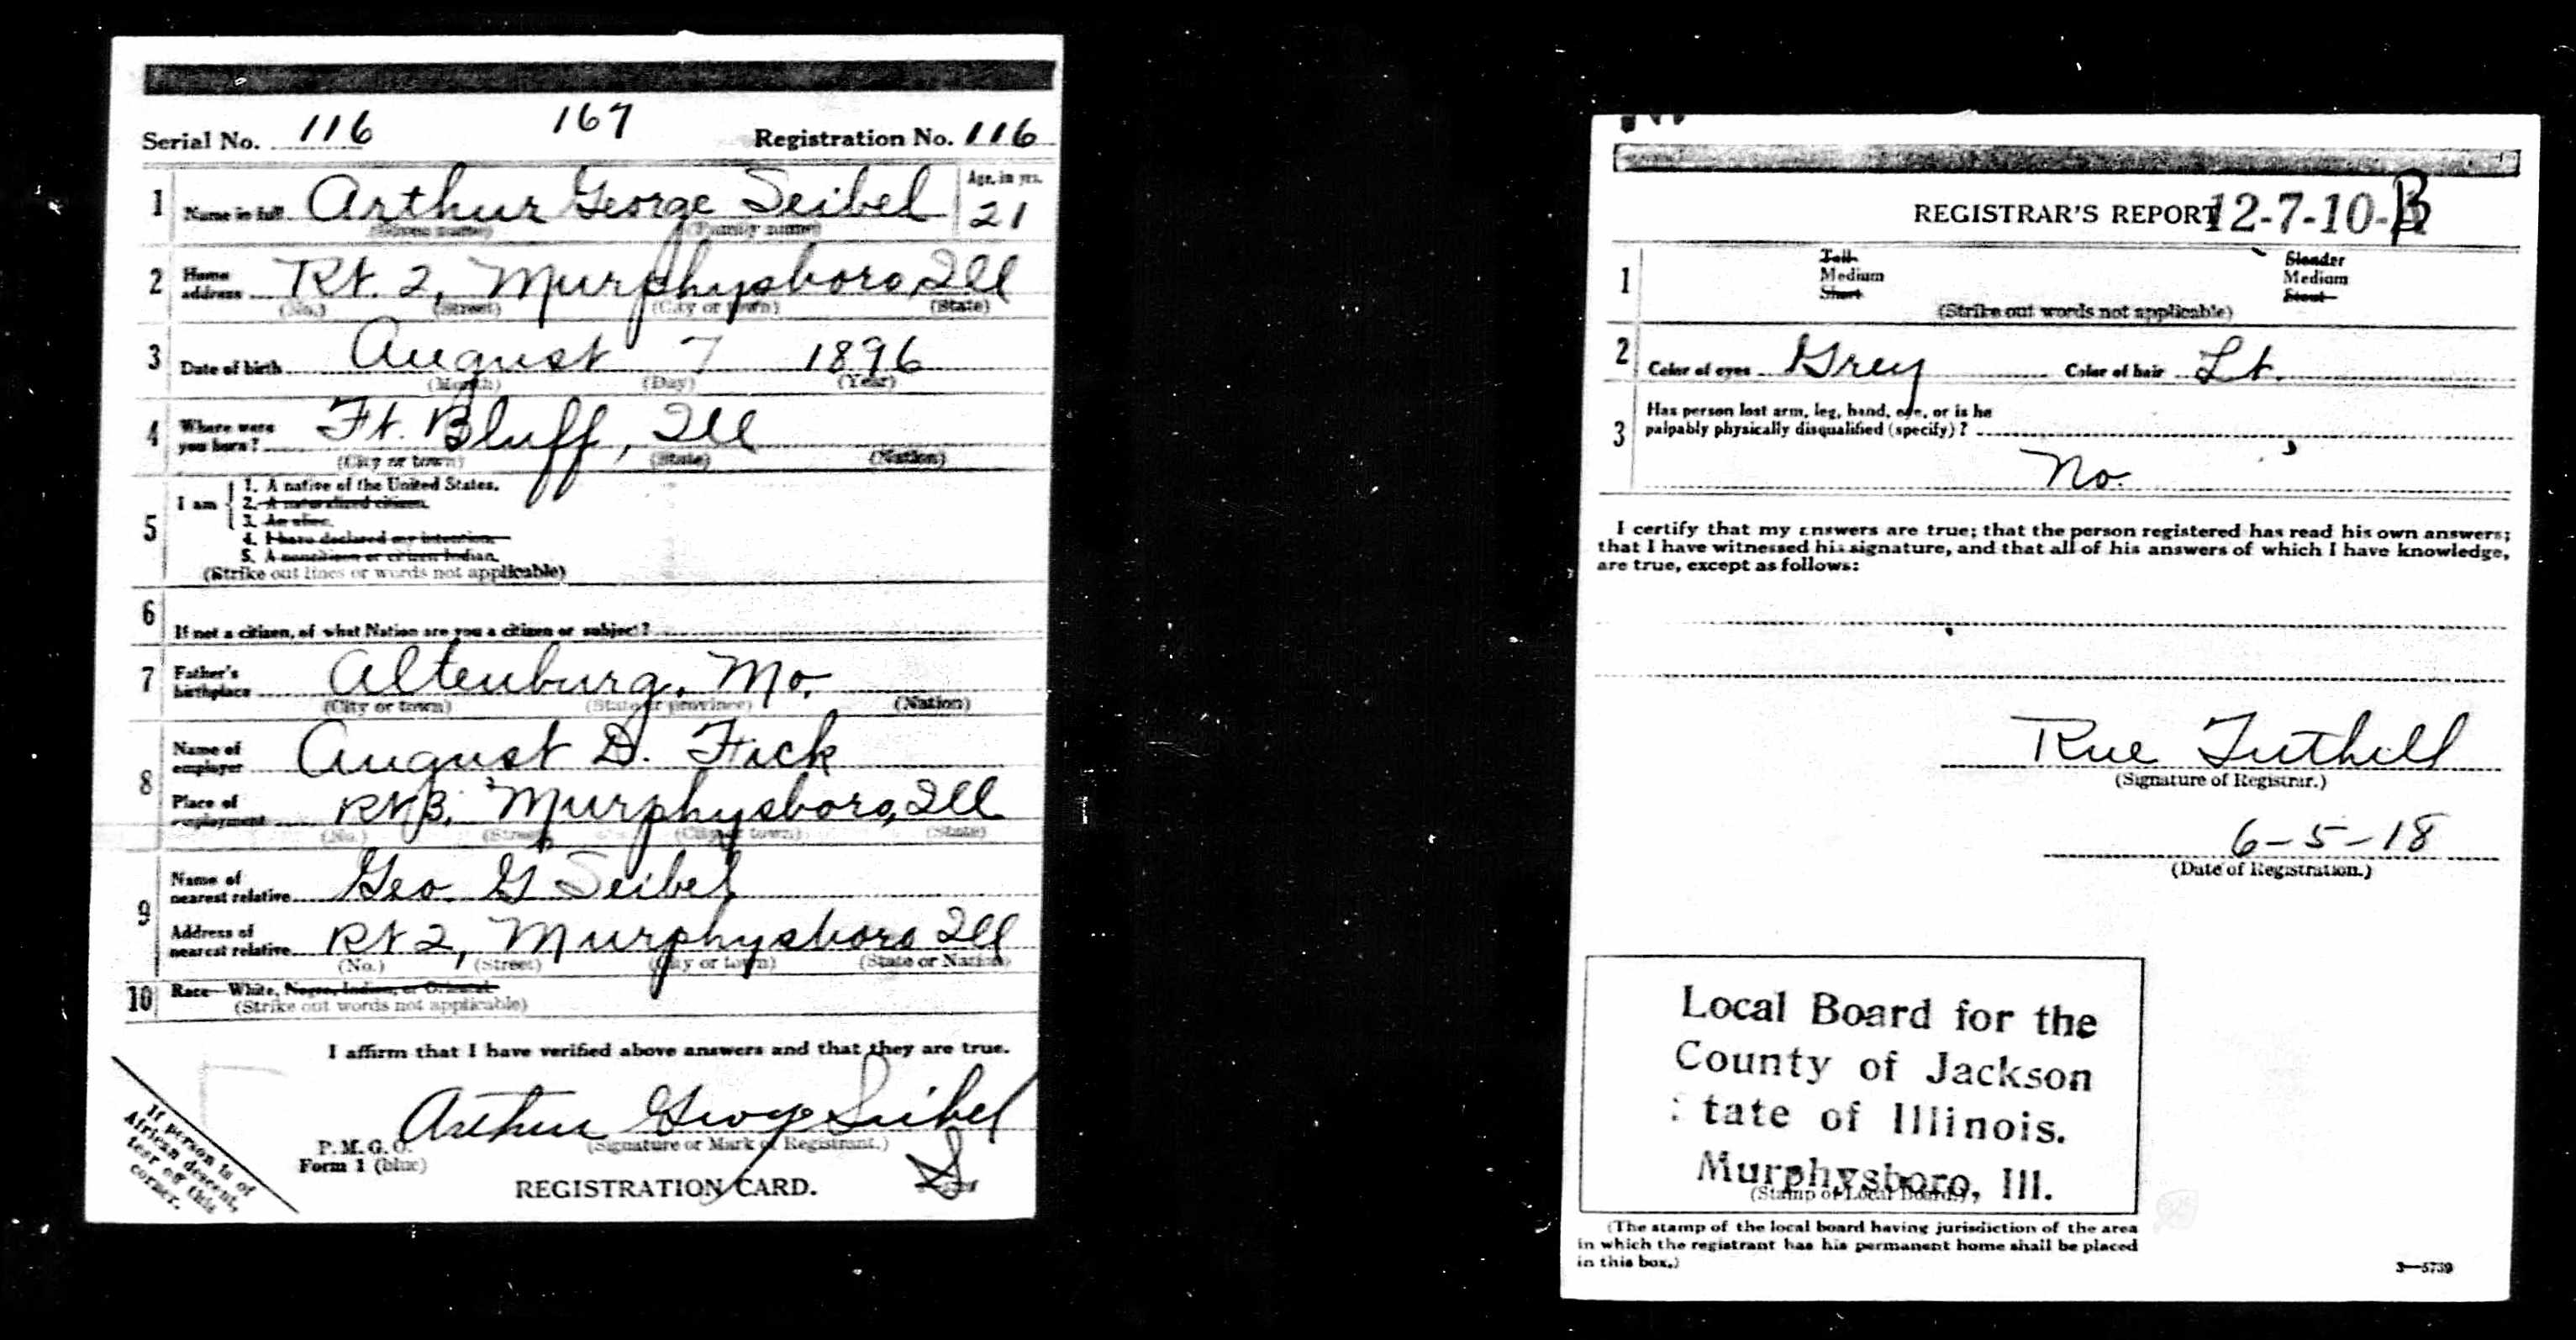 Serial No. 116 167 Registration No. 116
1 Name in full Arthur George Seibel Age, in yrs. 21
(Given name) (Family name)
2 Home address Rt. 2, Murphysboro, Ill
(No.) (Street) (City or town) (State)
3 Date of birth August 7 1896
(Month) (Day) (Year)
4 Where were you born? Ft. Bluff, Ill
(City or town) (State) (Nation)
5 I am
1. A native of the United States.
2. A naturalized citizen.
3. An alien.
4. I have declared my intention.
5. A noncitizen or citizen Indian.
(Strike out lines or words not applicable)
6 If not a citizen, of what Nation are you a citizen or subject?
7 Father's birthplace Altenburg, Mo.
(City or town) (State or province) (Nation)
8 Name of employer August D. Fick
Place of employment Rt 3, Murphysboro, Ill
(No.) (Street) (City or town) (State)
9 Name of nearest relative Geo. G Seibel
Address of nearest relative Rt 2, Murphysboro Ill
(No.) (Street) (City or town) (State or Nation)
10 Race—White, Negro, Indian, or Oriental
(Strike out words not applicable)
I affirm that I have verified above answers and that they are true.
Arthur George Seibel
(Signature or Mark of Registrant.)
P. M. G. O.
Form 1 (blue)
REGISTRATION CARD.
If person is of
African descent,
tear off this
corner.
REGISTRAR'S REPORT 12-7-10-B
1 Tall Slender
Medium Medium
Short Stout
(Strike out words not applicable)
2 Color of eyes Grey Color of hair Lt.
3 Has person lost arm, leg, hand, eye, or is he
palpably physically disqualified (specify)?
No.
I certify that my answers are true; that the person registered has read his own answers;
that I have witnessed his signature, and that all of his answers of which I have knowledge,
are true, except as follows:
Rue Tuthill
(Signature of Registrar.)
6-5-18
(Date of Registration.)
Local Board for the
County of Jackson
State of Illinois.
Murphysboro, Ill.
(Stamp of Local Board.)
(The stamp of the local board having jurisdiction of the area
in which the registrant has his permanent home shall be placed
in this box.)
3—5739